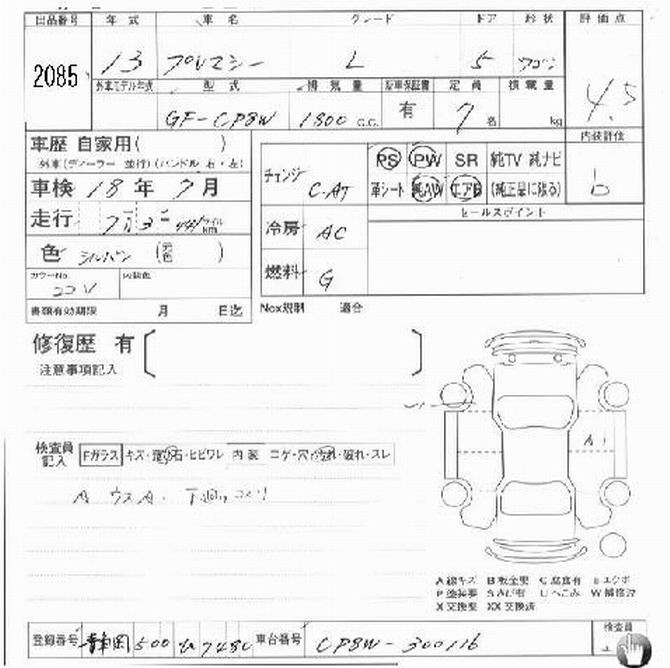 出品番号 年式 車名 グレード ドア 形状 評価点
2085 13 プレマシー L 5 ワゴン 4.5
外車モデル年式 型式 排気量 新車保証書 定員 積載量
GF-CP8W 1800 C.C. 有 7名 kg
内装評価
b
車歴 自家用( )
外車(ディーラー 並行)(ハンドル 右・左)
チェンジ C-AT PS PW SR 純TV 純ナビ
車検 18年 7月
革シート 純AW エアB (純正品に限る)
走行 マイル km
セールスポイント
冷房 AC
色 シルバー (元色 )
燃料 G
カラーNo. 内装色
22V
書類有効期限 月 日迄
Nox規制 適合
修復歴 有
注意事項記入
A1
検査員記入 Fガラス キズ・飛び石・ヒビワレ 内装 コゲ・穴・汚れ・破れ・スレ
A ウスA. 下廻りコスリ
A 線キズ B 板金要 C 腐食有 E エクボ
P 塗装要 S さび有 U へこみ W 補修波
X 交換要 XX 交換済
登録番号 静岡 500 7480 車台番号 CP8W-300116 検査員